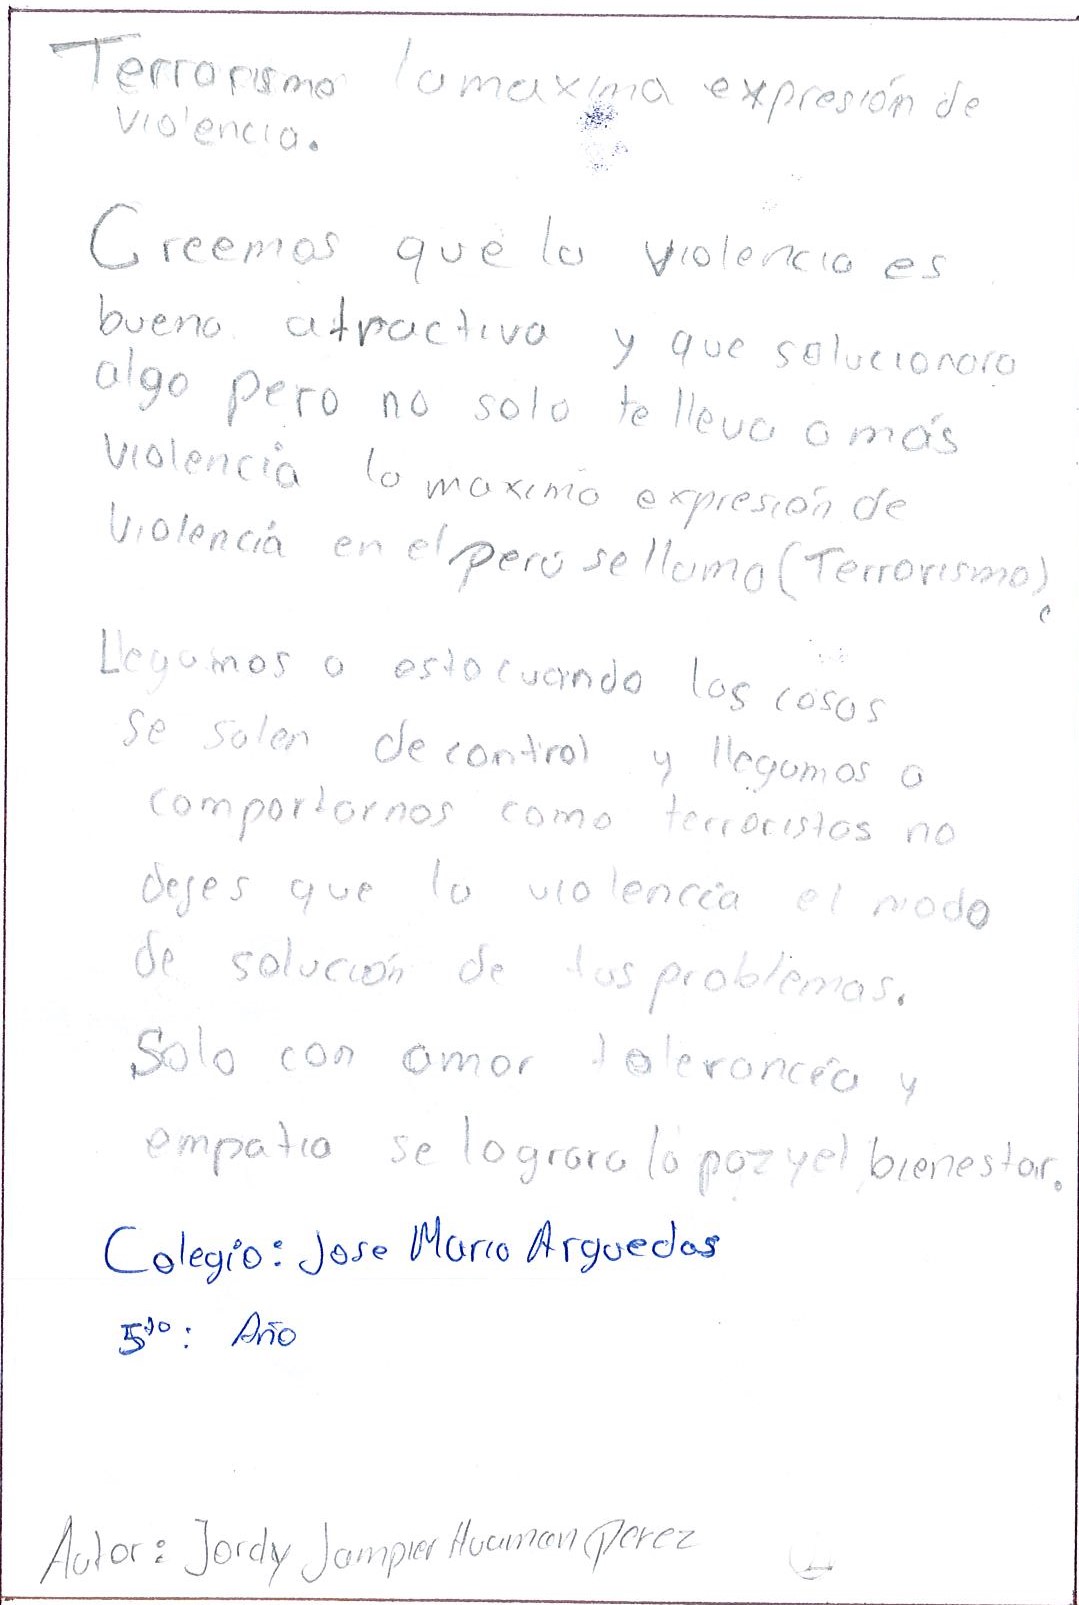 Terrorismo la maxima expresión de
violencia.
Creemos que la violencia es
buena atractiva y que solucionara
algo pero no solo te lleva a más
violencia la maxima expresión de
violencia en el peru se llama (Terrorismo).
Llegamos a esto cuando las cosas
se salen de control y llegamos a
comportarnos como terroristas no
dejes que la violencia el modo
de solución de tus problemas.
Solo con amor tolerancia y
empatia se lograra la paz y el bienestar.
Colegio: Jose Maria Arguedas
5to: Año
Autor: Jordy Jampier Huaman Perez